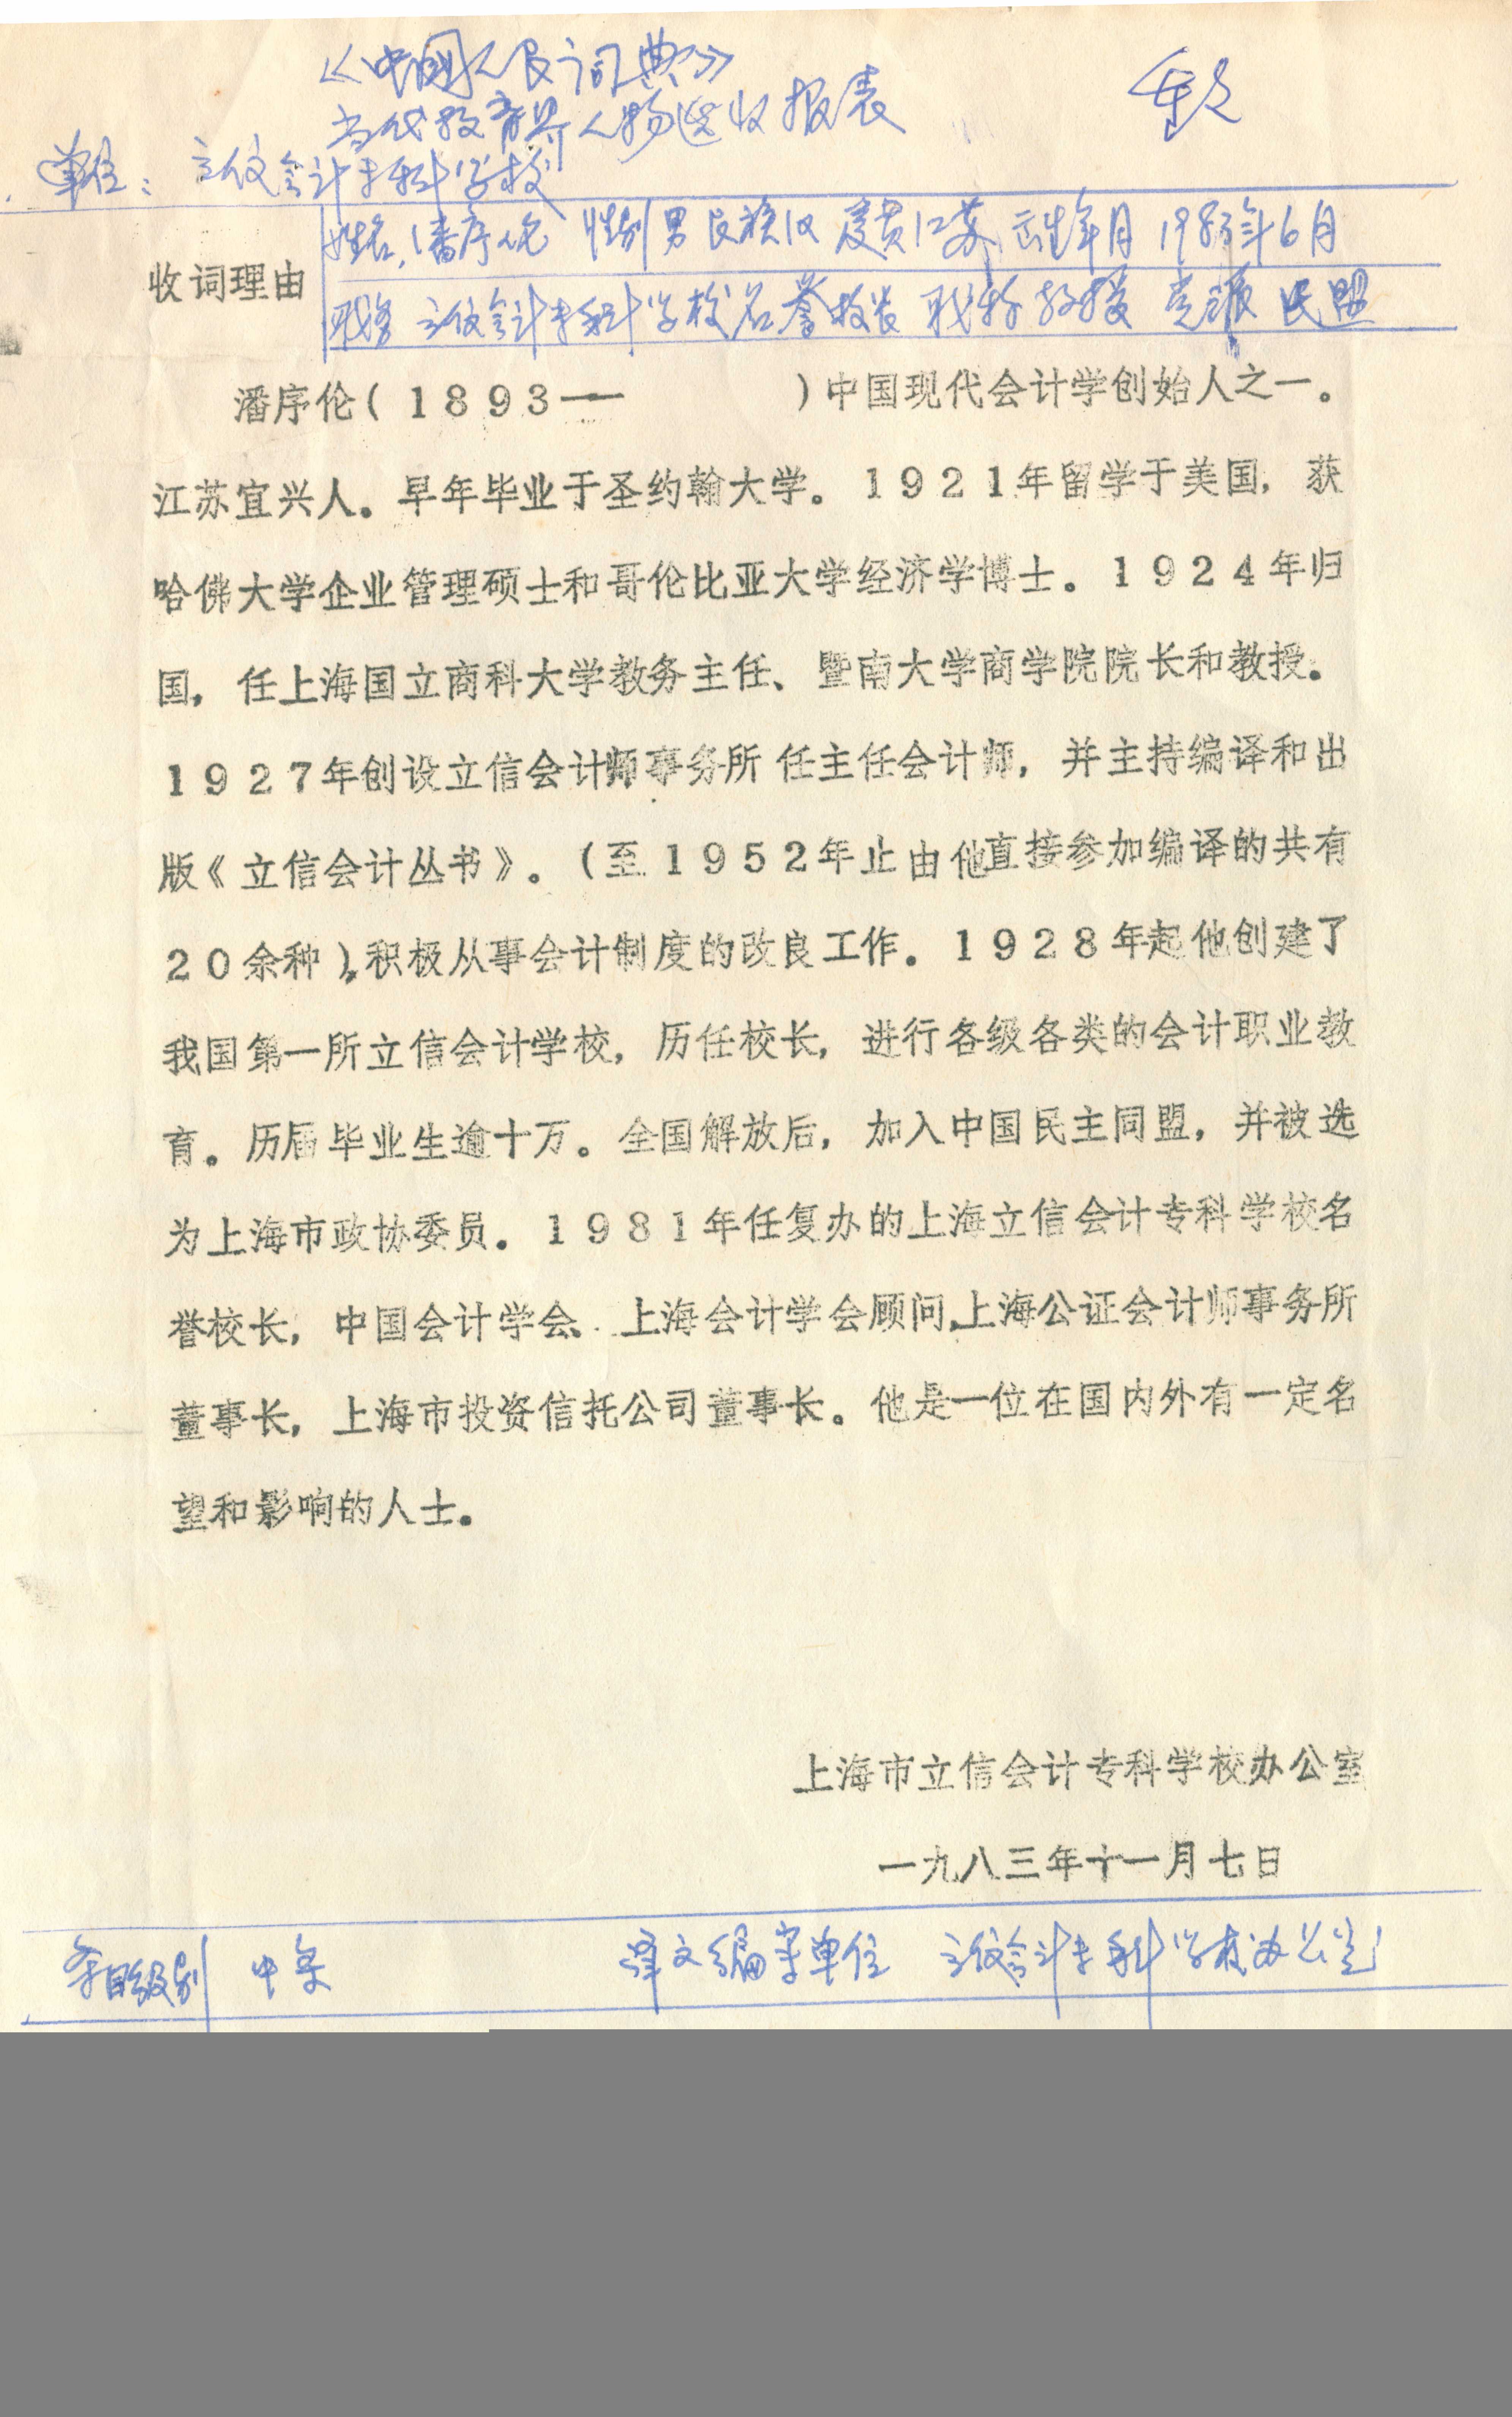 《中国人民词典》
当代教育界人物选收报表
单位：立信会计专科学校
姓名，潘序伦 性别 男 民族 汉 籍贯 江苏 出生年月 1983年6月
收词理由
职务 立信会计专科学校名誉校长 职称 教授 党派 民盟
潘序伦（1893— ）中国现代会计学创始人之一。
江苏宜兴人。早年毕业于圣约翰大学。1921年留学于美国，获
哈佛大学企业管理硕士和哥伦比亚大学经济学博士。1924年归
国，任上海国立商科大学教务主任、暨南大学商学院院长和教授。
1927年创设立信会计师事务所 任主任会计师，并主持编译和出
版《立信会计丛书》。（至1952年止由他直接参加编译的共有
20余种），积极从事会计制度的改良工作。1928年起他创建了
我国第一所立信会计学校，历任校长，进行各级各类的会计职业教
育。历届毕业生逾十万。全国解放后，加入中国民主同盟，并被选
为上海市政协委员。1981年任复办的上海立信会计专科学校名
誉校长，中国会计学会、上海会计学会顾问，上海公证会计师事务所
董事长，上海市投资信托公司董事长。他是一位在国内外有一定名
望和影响的人士。
上海市立信会计专科学校办公室
一九八三年十一月七日
条目级别 中条 释文编字单位 立信会计专科学校办公室